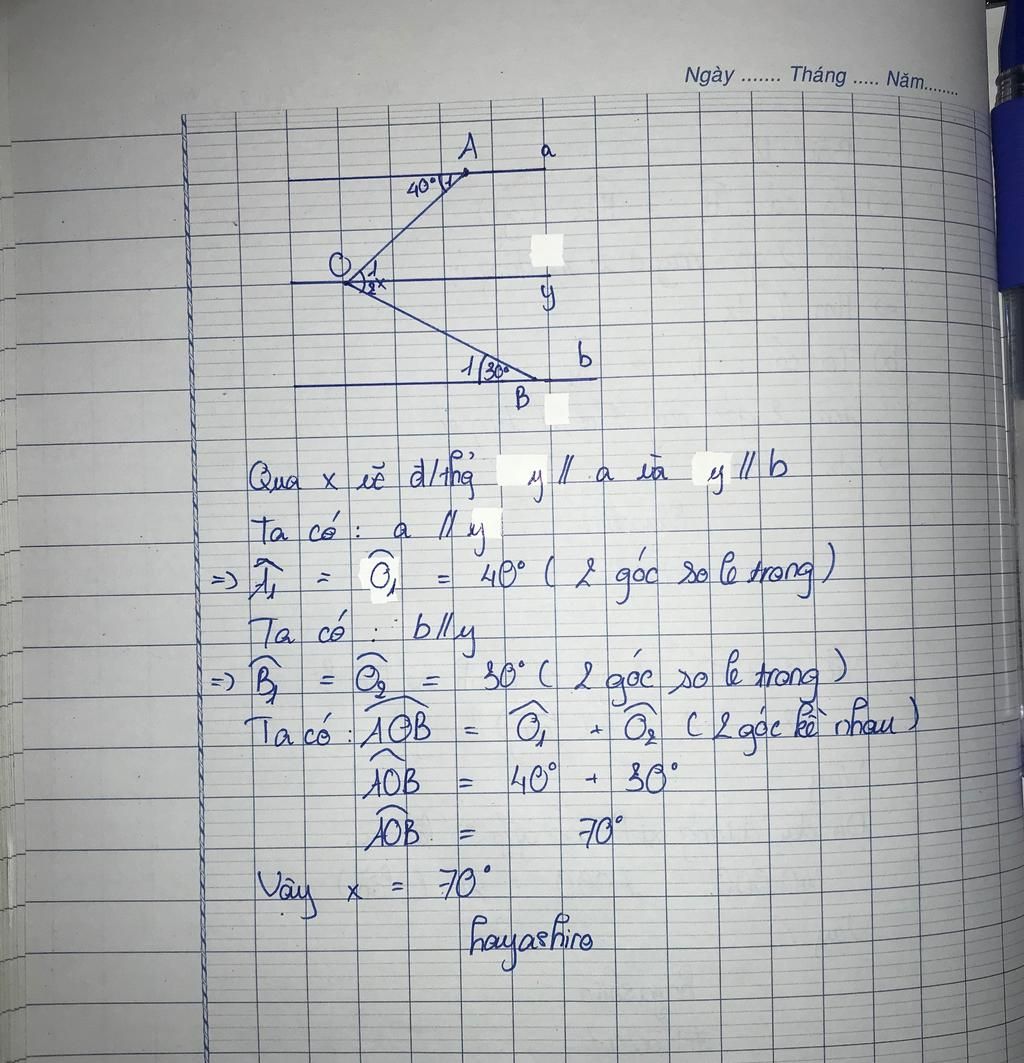 Ngày ....... Tháng ..... Năm........
A a
40° 1
O 1
2 x
y
1 30° b
B
Qua x vẽ đ/thg y // a và y // b
Ta có : a // y
=> Â₁ = Ô₁ = 40° ( 2 góc so le trong )
Ta có : b // y
=> B̂₁ = Ô₂ = 30° ( 2 góc so le trong )
Ta có : AOB = Ô₁ + Ô₂ ( 2 góc kề nhau )
AOB = 40° + 30°
AOB = 70°
Vậy x = 70°
hayashiro